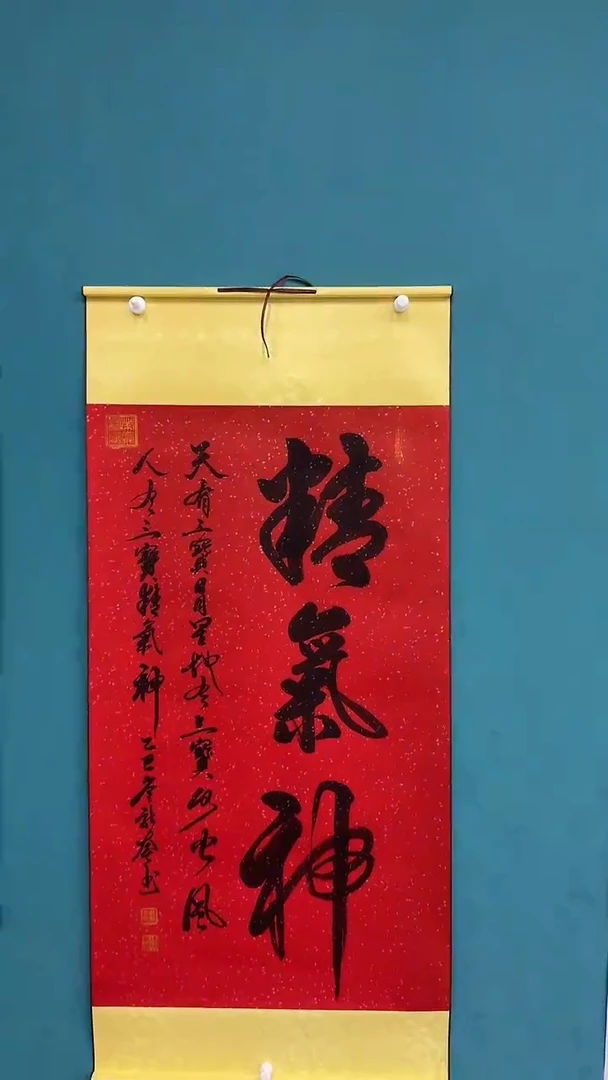 精氣神
天有三寶日月星地有三寶水火風
人有三寶精氣神 乙巳 書